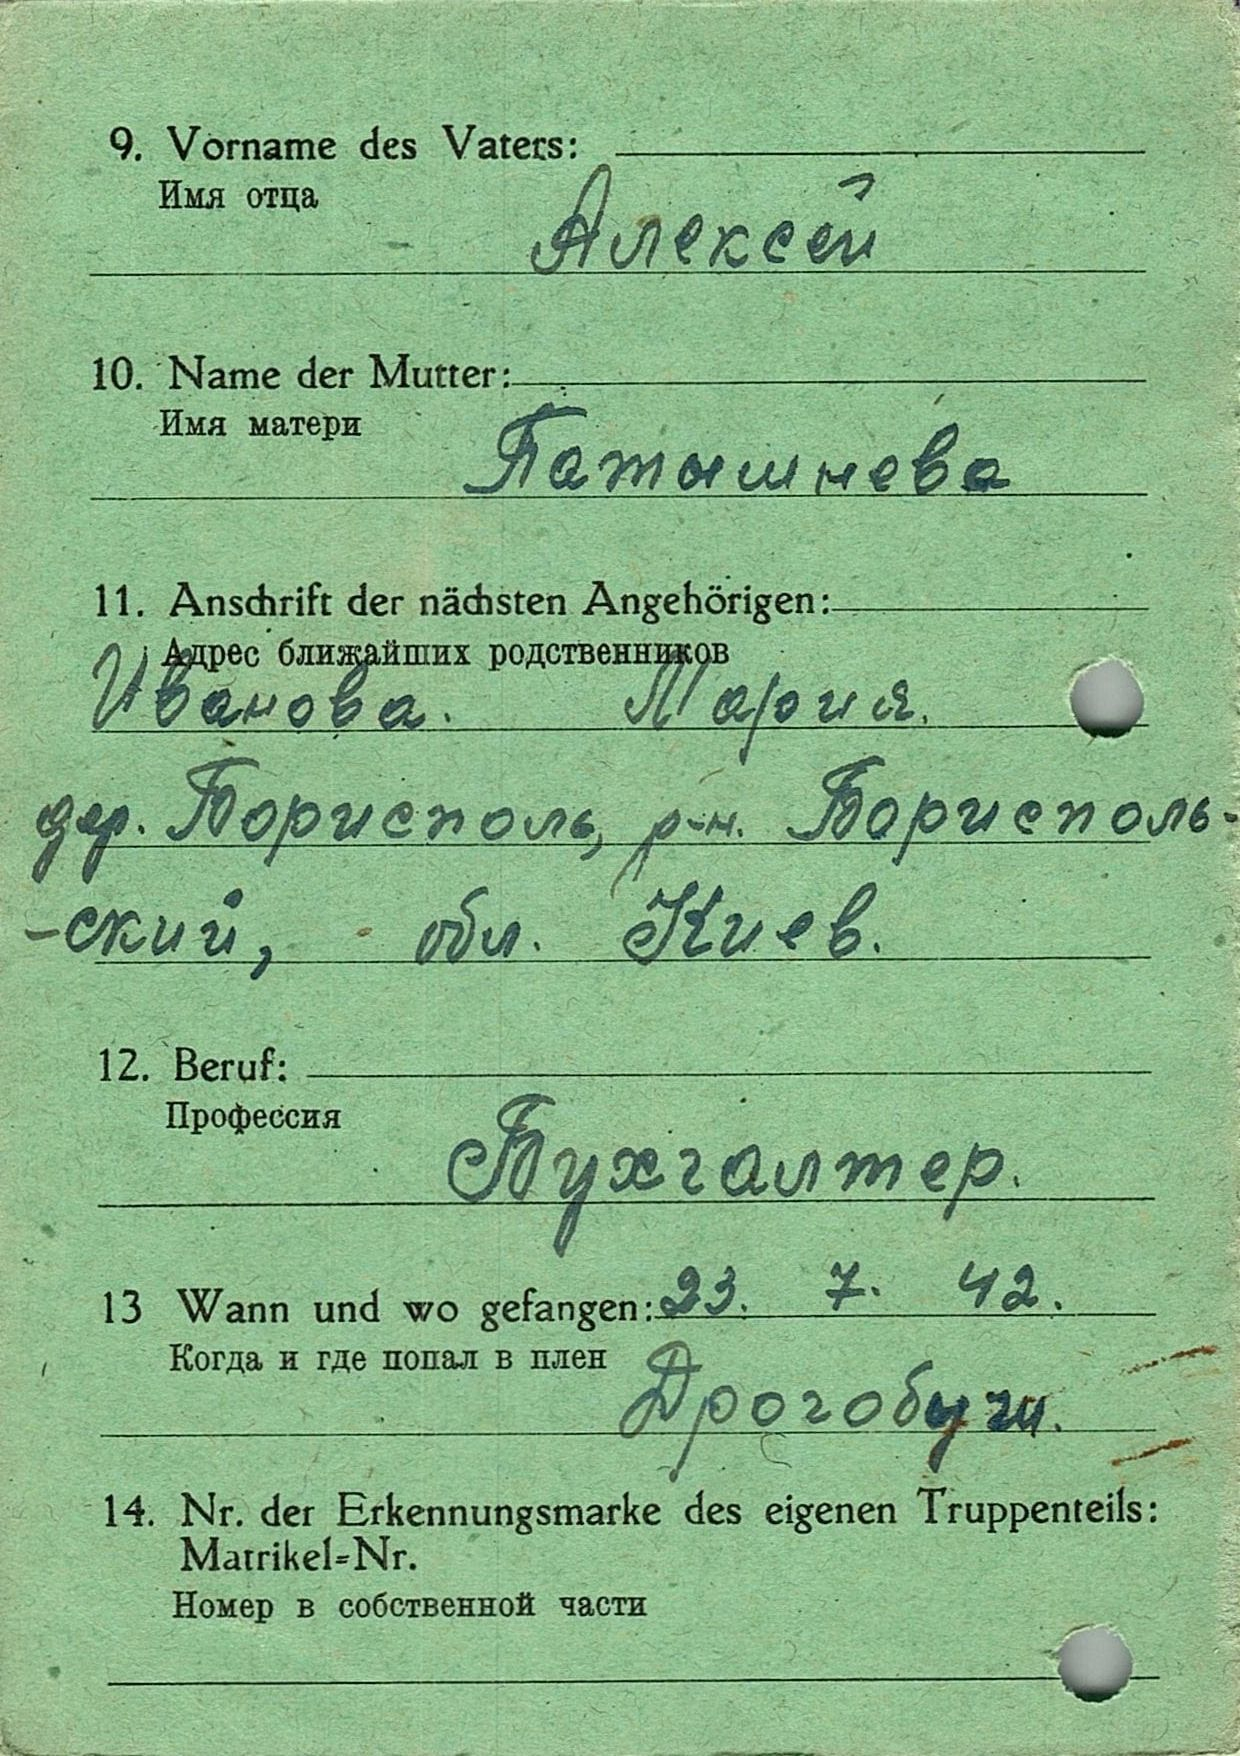 9. Vorname des Vaters:
Имя отца
Алексей
10. Name der Mutter:
Имя матери
Патышнева
11. Anschrift der nächsten Angehörigen:
Адрес ближайших родственников
Иванова. Мария.
дер. Борисполь, р-н. Борисполь-
-ский, обл. Киев.
12. Beruf:
Профессия
Бухгалтер.
13 Wann und wo gefangen: 23. 7. 42.
Когда и где попал в плен
14. Nr. der Erkennungsmarke des eigenen Truppenteils:
Matrikel=Nr.
Номер в собственной части